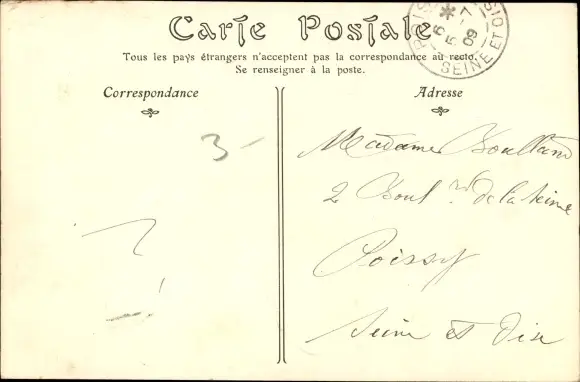 Carte Postale
Tous les pays étrangers n'acceptent pas la correspondance au recto.
Se renseigner à la poste.
Correspondance
Adresse
SEINE ET OISE
5 * 
5 -7
09
3-
Madame Boulland
2 Boul rd de la Seine
Poissy
Seine et Oise